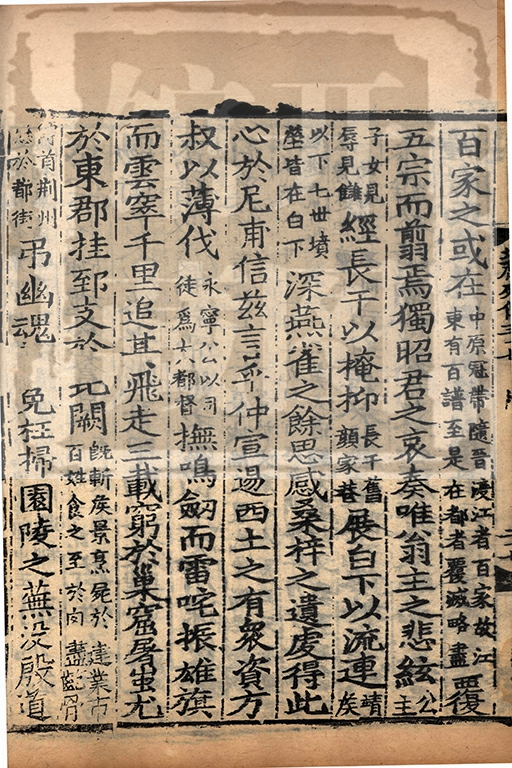 百家之或在中原冠帶隨晉渡江者百家故江東有百譜至是在都者覆滅略盡覆
五宗而翦焉獨昭君之哀奏唯翁主之悲絃公主
子女見辱見讎經長干以掩抑長干舊顔家巷展白下以流連靖侯
以下七世墳塋皆在白下深燕雀之餘思感桑梓之遺虔得此
心於尼甫信兹言乎仲宣逿西土之有衆資方
叔以薄伐永寧公以司徒爲大都督撫鳴劒而雷咤振雄旗
而雲窣千里追其飛走三載窮於巢窟屠蚩尤
於東郡挂郅支於北闕既斬侯景烹屍於建業市百姓食之至於肉盡齕骨
首荆州於都街弔幽魂免枉掃園陵之蕪没殷道